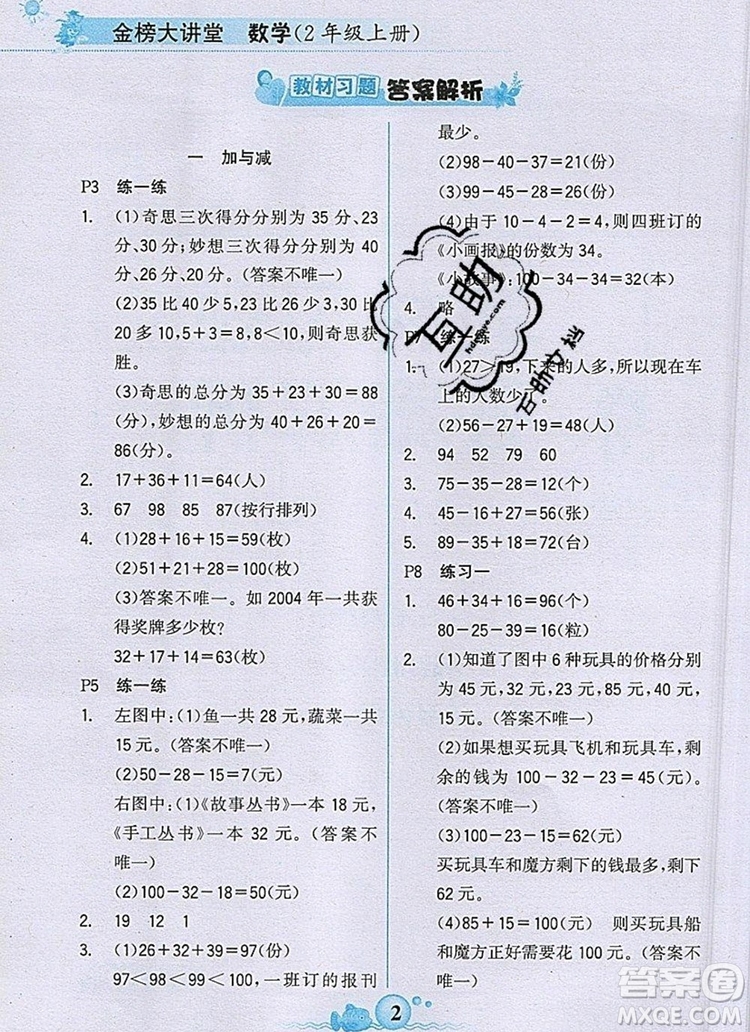 金榜大讲堂 数学(2年级上册)
教材习题 答案解析
一 加与减
P3 练一练
1. (1)奇思三次得分分别为 35 分、23
分、30 分;妙想三次得分分别为 40
分、26 分、20 分。(答案不唯一)
(2)35 比 40 少 5,23 比 26 少 3,30 比
20 多 10,5+3=8,8<10,则奇思获
胜。
(3)奇思的总分为 35+23+30=88
(分),妙想的总分为 40+26+20=
86(分)。
2. 17+36+11=64(人)
3. 67 98 85 87(按行排列)
4. (1)28+16+15=59(枚)
(2)51+21+28=100(枚)
(3)答案不唯一。如 2004 年一共获
得奖牌多少枚?
32+17+14=63(枚)
P5 练一练
1. 左图中:(1)鱼一共 28 元,蔬菜一共
15 元。(答案不唯一)
(2)50-28-15=7(元)
右图中:(1)《故事丛书》一本 18 元,
《手工丛书》一本 32 元。(答案不
唯一)
(2)100-18-32=50(元)
2. 19 12 1
3. (1)26+32+39=97(份)
97<98<99<100,一班订的报刊
最少。
(2)98-40-37=21(份)
(3)99-43-28=28(份)
(4)由于 10-4-2=4,则四班订的
《小画报》的份数为 34。
《小故事》:100-34-34=32(本)
4. 略
P7 练一练
1. (1)27>19,下来的人多,所以现在车
上的人数少了。
(2)56-27+19=48(人)
2. 94 52 79 60
3. 75-35-28=12(个)
4. 45-16+27=56(张)
5. 89-35+18=72(台)
P8 练习一
1. 46+34+16=96(个)
80-25-39=16(粒)
2. (1)知道了图中 6 种玩具的价格分别
为 45 元、32 元、23 元、68 元、40 元、
15 元。(答案不唯一)
(2)如果想买玩具飞机和玩具车,剩
余的钱为 100-32-23=45(元)。
(答案不唯一)
(3)100-23-15=62(元)
买玩具车和魔方剩下的钱最多,剩下
62 元。
(4)85+15=100(元) 则买玩具船
和魔方正好需要花 100 元。(答案不
唯一)
互助
hdzuoye.com
互助文档
2
答案圈
MXQE.COM